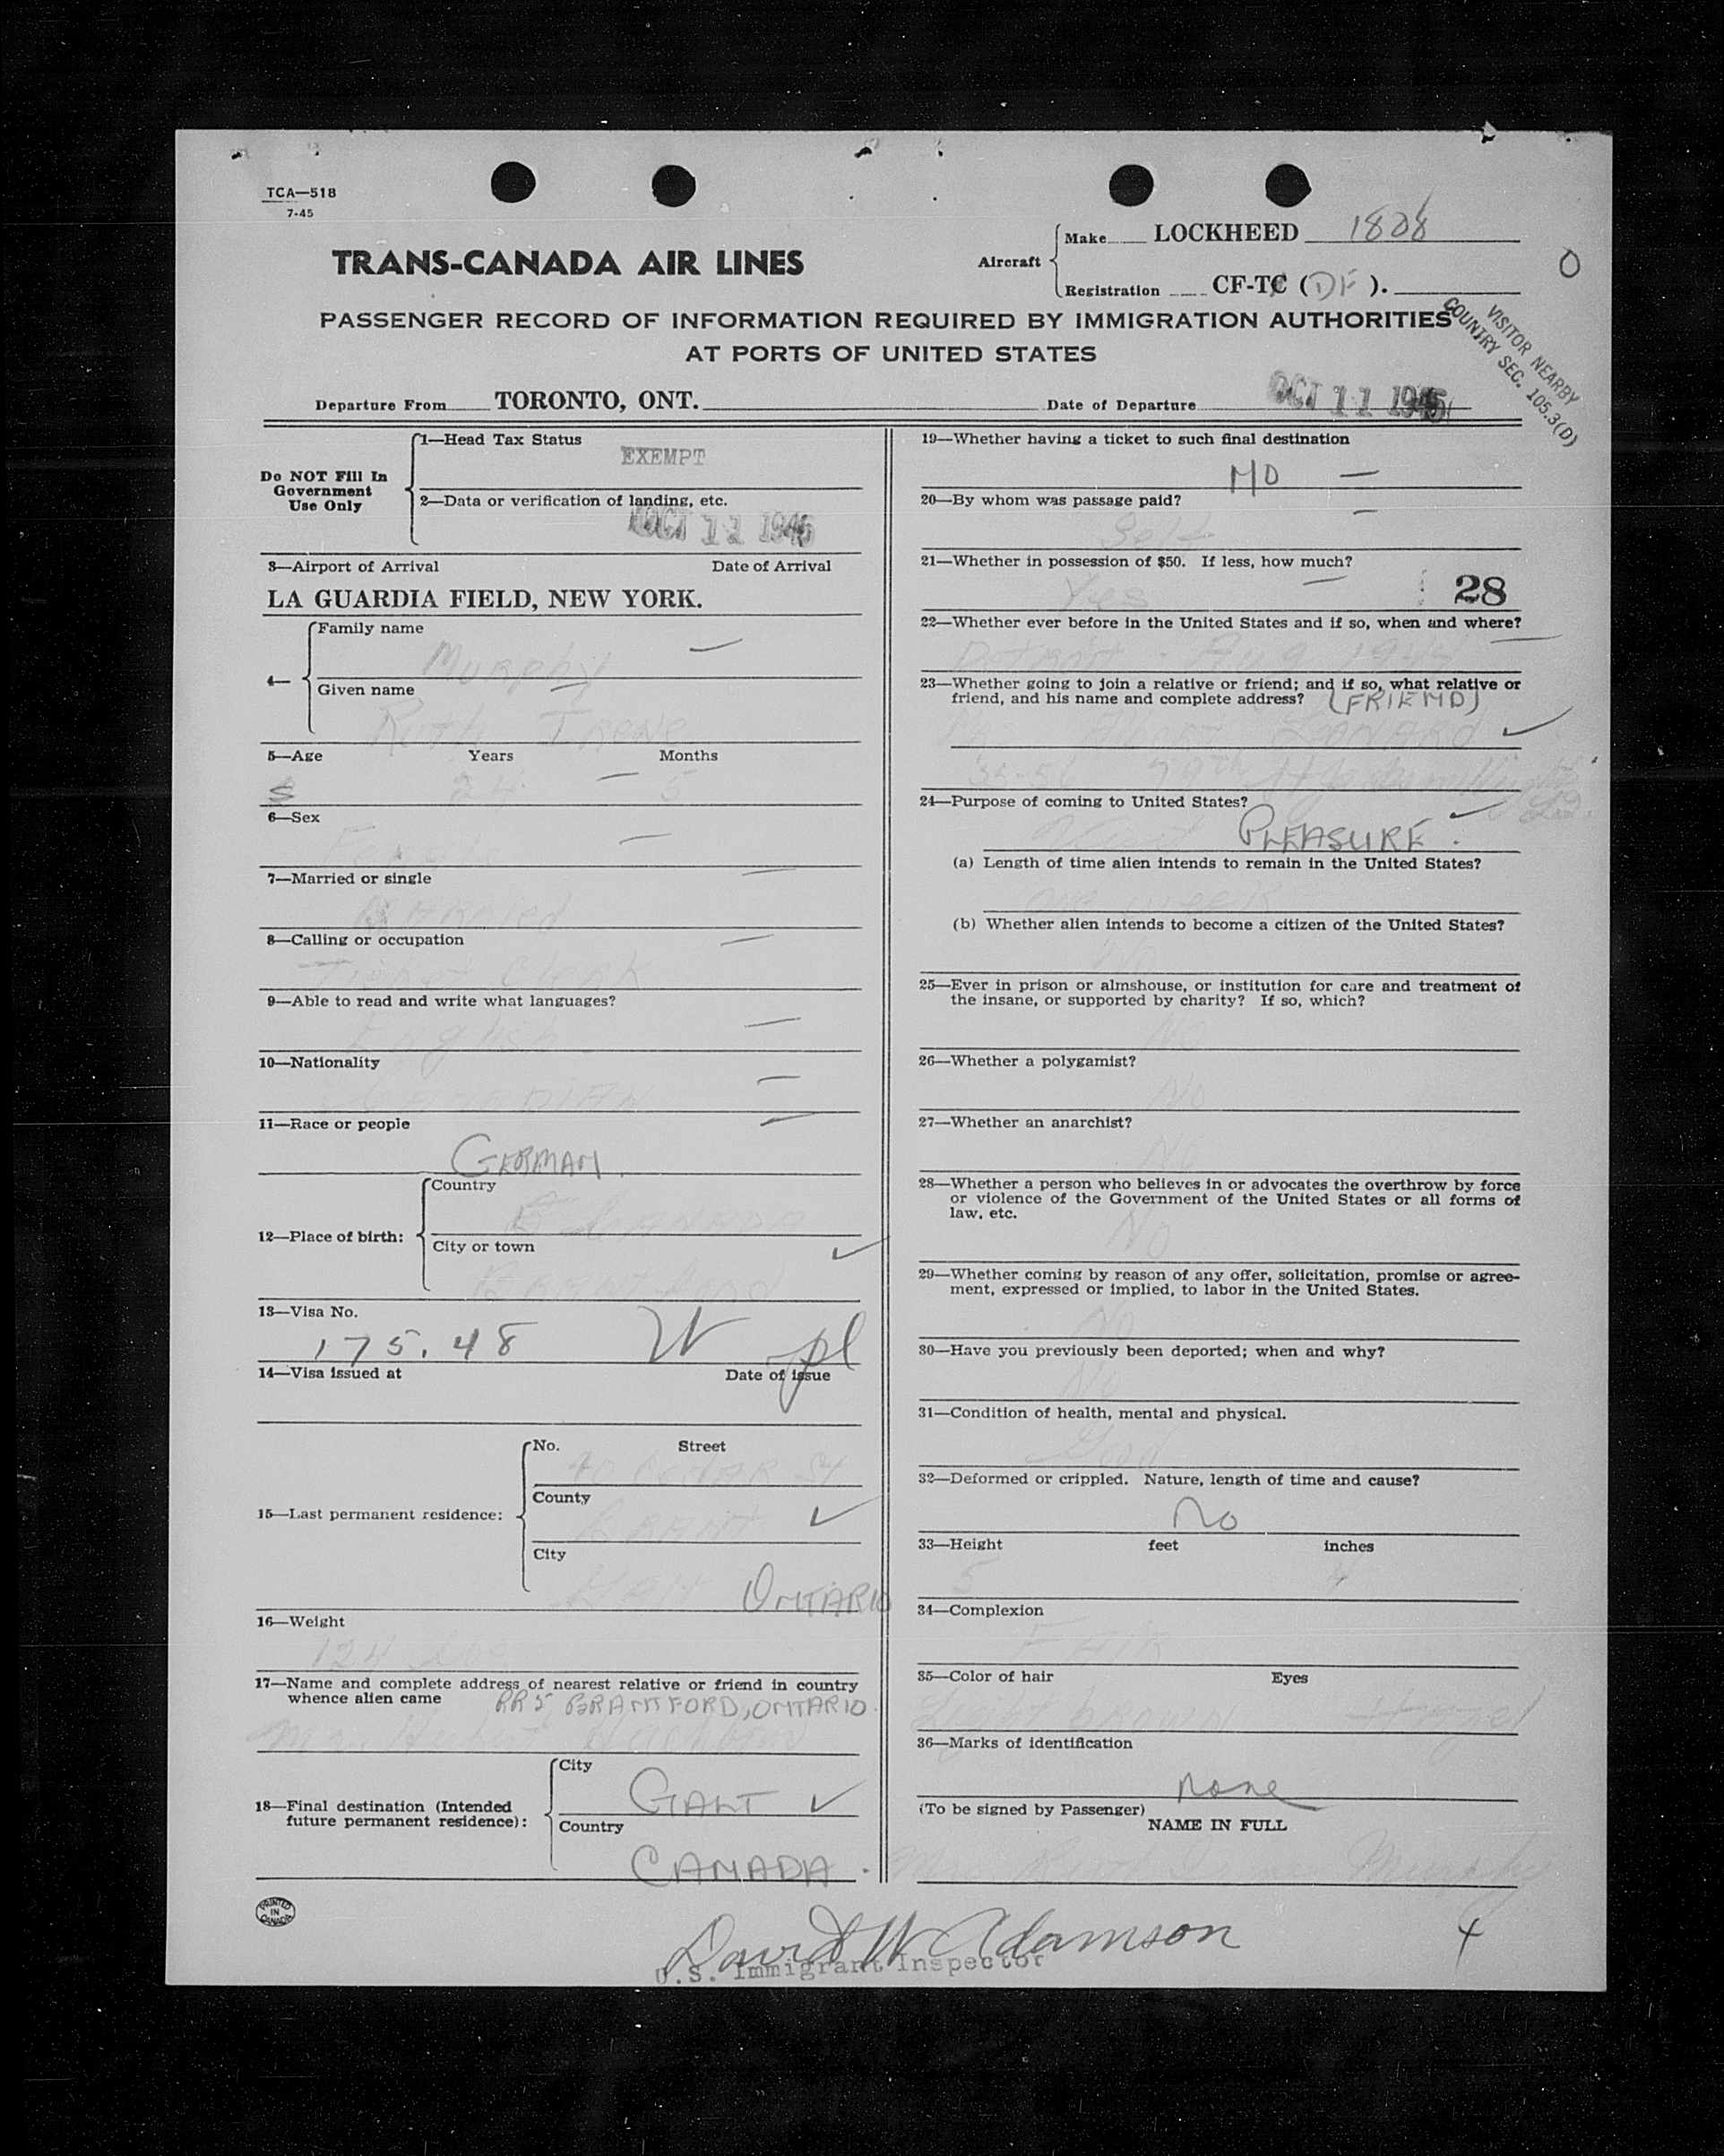 TCA—518
7-45
TRANS-CANADA AIR LINES
Aircraft
Make LOCKHEED 1808
Registration CF-TC (DF).
0
PASSENGER RECORD OF INFORMATION REQUIRED BY IMMIGRATION AUTHORITIES
AT PORTS OF UNITED STATES
VISITOR NEARBY
COUNTRY SEC. 105.3(D)
Departure From TORONTO, ONT.
Date of Departure OCT 11 1945
Do NOT Fill In
Government
Use Only
1—Head Tax Status
EXEMPT
2—Data or verification of landing, etc.
OCT 11 1945
3—Airport of Arrival Date of Arrival
LA GUARDIA FIELD, NEW YORK.
4—
Family name
Murphy
Given name
Ruth Irene
5—Age Years Months
S 24 5
6—Sex
Female
7—Married or single
Married
8—Calling or occupation
Clerk
9—Able to read and write what languages?
English
10—Nationality
CANADIAN
11—Race or people
GERMAN.
12—Place of birth:
Country
CANADA
City or town
Brantford
13—Visa No.
175.48 W pl
14—Visa issued at Date of issue
15—Last permanent residence:
No. Street
40 CEDAR St
County
BRANT
City
GALT ONTARIO
16—Weight
124 lbs
17—Name and complete address of nearest relative or friend in country
whence alien came RR 5 BRANTFORD, ONTARIO
18—Final destination (Intended
future permanent residence):
City
GALT
Country
CANADA.
PRINTED
IN
CANADA
19—Whether having a ticket to such final destination
NO —
20—By whom was passage paid?
Self
21—Whether in possession of $50. If less, how much?
Yes 28
22—Whether ever before in the United States and if so, when and where?
Detroit - Aug 1945
23—Whether going to join a relative or friend; and if so, what relative or
friend, and his name and complete address? (FRIEND)
79th
24—Purpose of coming to United States?
PLEASURE.
(a) Length of time alien intends to remain in the United States?
one week
(b) Whether alien intends to become a citizen of the United States?
No
25—Ever in prison or almshouse, or institution for care and treatment of
the insane, or supported by charity? If so, which?
No
26—Whether a polygamist?
No
27—Whether an anarchist?
No
28—Whether a person who believes in or advocates the overthrow by force
or violence of the Government of the United States or all forms of
law, etc.
No
29—Whether coming by reason of any offer, solicitation, promise or agree-
ment, expressed or implied, to labor in the United States.
No
30—Have you previously been deported; when and why?
No
31—Condition of health, mental and physical.
Good
32—Deformed or crippled. Nature, length of time and cause?
No
33—Height feet inches
5 4
34—Complexion
FAIR
35—Color of hair Eyes
Light brown Hazel
36—Marks of identification
None
(To be signed by Passenger)
NAME IN FULL
Mrs Ruth Irene Murphy
David W Adamson
U.S. Immigrant Inspector
4